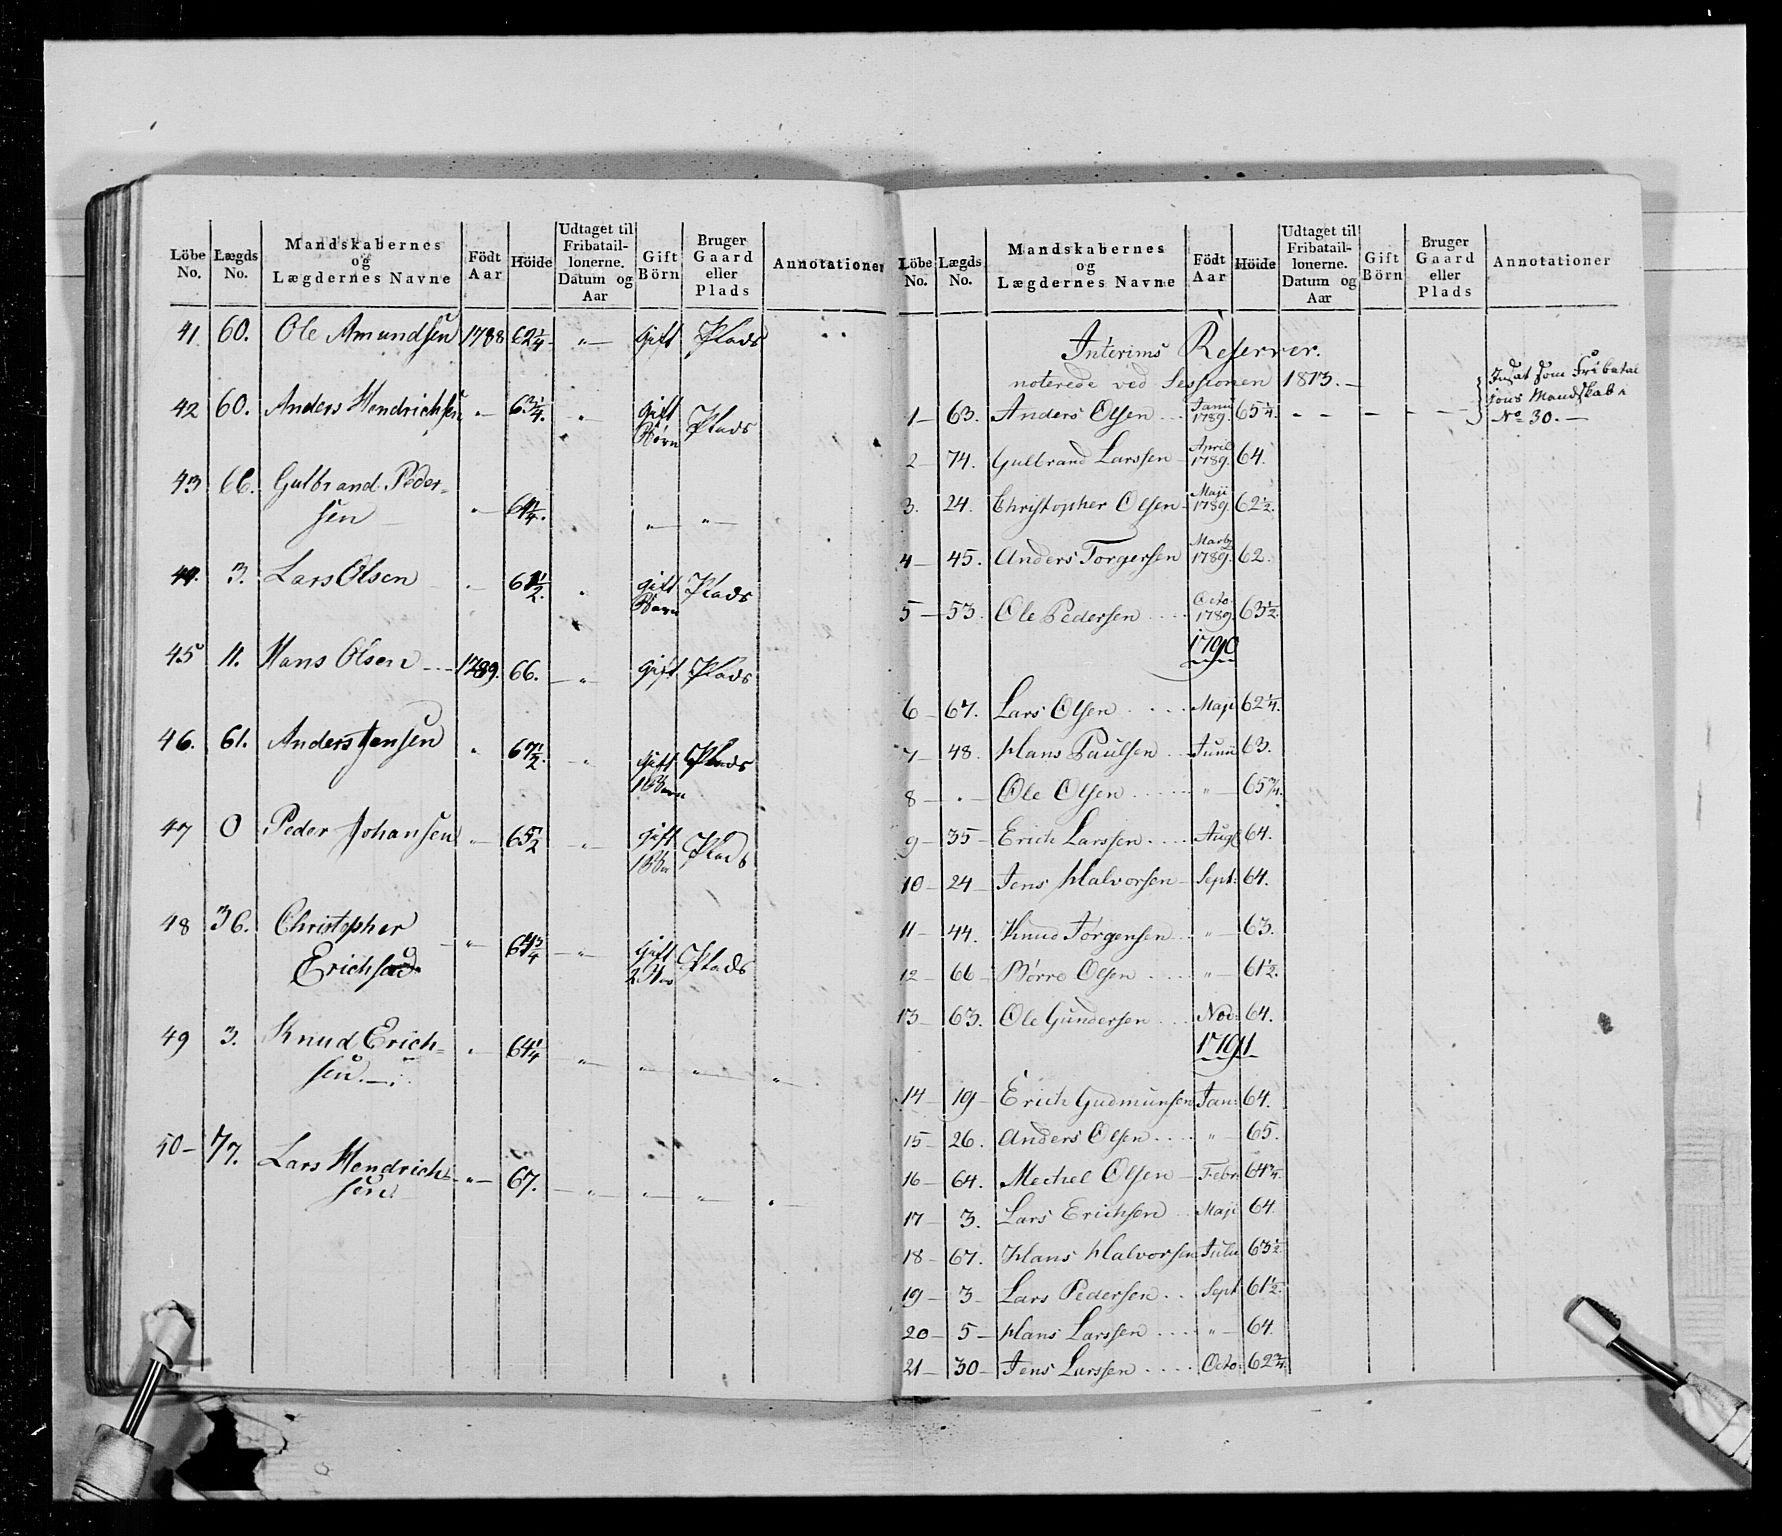 Löbe No. Lægds No. Mandskabernes og Lægdernes Navne Födt Aar Höide Udtaget til Fribatail- lonerne. Datum og Aar Gift Börn Bruger Gaard eller Plads Annotationer
41. 60. Ole Amundsen 1788 62 1/4 " Gift Plads
42 60. Anders Hendrichsen " 63 1/4. " Gift Plads
Börn
43 66. Gulbrand Peder-
sen " 1/4. " "
44. 3. Lars Olsen " 61 1/2. " Gift Plads
Børn
45 11. Hans Olsen 1789. 66. " Gift Plads
46. 61. Anders Jensen " 67 1/2. " Gift Plads
1 Barn
47 0 Peder Johansen " 65 1/2 " Gift Plads
1 Bar
48 36. Christopher
Erichsen " 64 3/4 " Gift Plads
2
49 3. Knud Erich-
sen " 64 1/4 " " " "
50 77. Lars Hendrich-
sen " 67. " " " "
Löbe No. Lægds No. Mandskabernes og Lægdernes Navne Födt Aar Höide Udtaget til Fribatail- lonerne. Datum og Aar Gift Börn Bruger Gaard eller Plads Annotationer
Interims Reserver.
noterede ved Sessionen 1813.
1 63. Anders Olsen Janu 1789. 65 1/4. Indsat som Fribatal
jons Mandskab i
No 30.
2 74. Gulbrand Larssen April 1789. 64.
3. 24. Christopher Olsen Maji 1789. 62 1/2.
4 45. Anders Torgersen Marty 1789. 62.
5 53. Ole Pedersen Octo. 1789. 63 1/2.
1790
6 67. Lars Olsen Maji 62 1/4.
7 48. Hans Paulsen Junii 63.
8 " Ole Olsen " 65 3/4.
9 35 Erich Larssen Aug 64.
10 24 Jens Halvorsen Sept: 64.
11 44. Knud Torgensen " 63.
12 66 Börre Olsen " 61 1/2.
13 63. Ole Gundersen Nov: 64.
1791
14 19 Erich Gudmunsen Jan: 64.
15 26. Anders Olsen " 65.
16 64. Mechel Olsen Febr. 64 3/4.
17 3. Lars Erichsen Maji 64.
18 67. Hans Halvorsen Julii 63 1/2
19 3 Lars Pedersen Sept 61 1/2.
20 5 Hans Larssen " 64.
21 30 Jens Larssen Octo: 62 3/4.